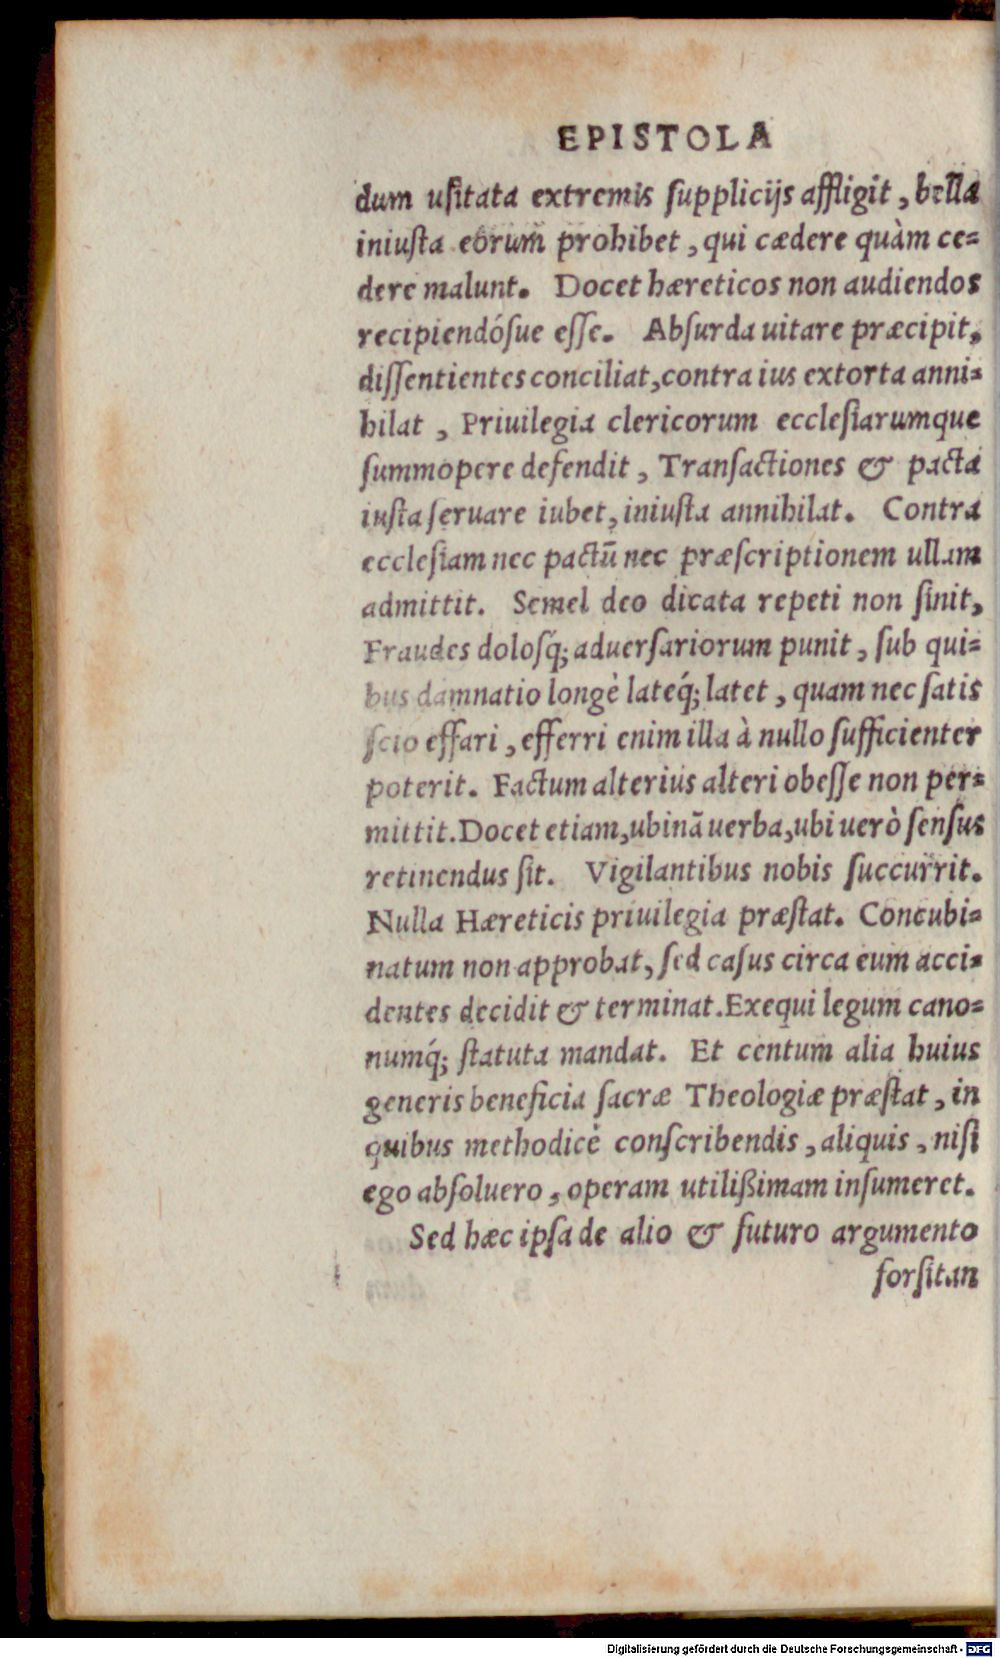 EPISTOLA
dum usitata extremis supplicijs affligit, bella
iniusta eorum prohibet, qui cædere quàm ce=
dere malunt. Docet hæreticos non audiendos
recipiendósue esse. Absurda uitare præcipit,
dissentientes conciliat, contra ius extorta anni=
hilat, Priuilegia clericorum ecclesiarumque
summopere defendit, Transactiones & pacta
iusta seruare iubet, iniusta annihilat. Contra
ecclesiam nec pactū nec præscriptionem ullam
admittit. Semel deo dicata repeti non sinit,
Fraudes dolosq́; aduersariorum punit, sub qui=
bus damnatio longè lateq́; latet, quam nec satis
scio effari, efferri enim illa à nullo sufficienter
poterit. Factum alterius alteri obesse non per=
mittit. Docet etiam, ubinā uerba, ubi uerò sensus
retinendus sit. Vigilantibus nobis succurrit.
Nulla Hæreticis priuilegia præstat. Concubi=
natum non approbat, sed casus circa eum acci=
dentes decidit & terminat. Exequi legum cano=
numq́; statuta mandat. Et centum alia huius
generis beneficia sacræ Theologiæ præstat, in
quibus methodicè conscribendis, aliquis, nisi
ego absoluero, operam utilißimam insumeret.
Sed hæc ipsa de alio & futuro argumento
forsitan
Digitalisierung gefördert durch die Deutsche Forschungsgemeinschaft - DFG